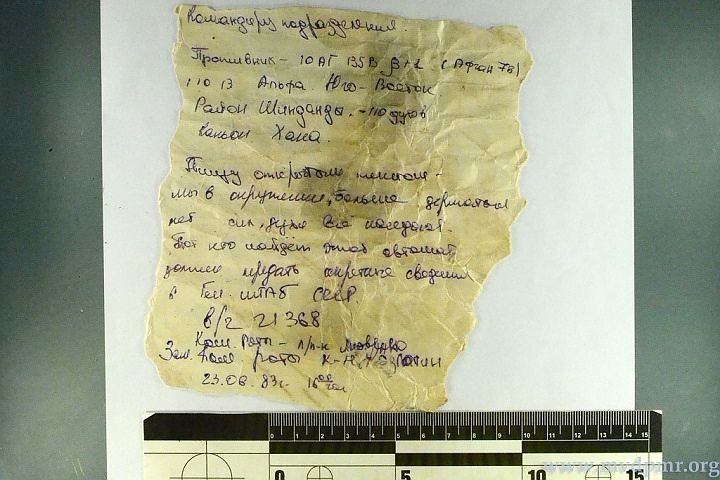 Командиру подразделения.
Противник - 10 АГ 135В β+2 (Афган 78)
11013 Альфа. Юго-Восток
Район Шинданды. - 110 духов
Каньон Хана.
Пишу открытым текстом -
мы в окружении, больше держаться
нет сил, духи всё наседают.
Тот кто найдет этот автомат,
должен передать секретные сведения
в Ген. штаб СССР.
в/ч 21368
Ком. Роты - п/п-к
Зам. Ком. роты К-н
23.06.83г. 16 00
0 1 2 3 4 5 6 7 8 9 10 11 12 13 14 15
0 5 10 15
www.modpmr.org